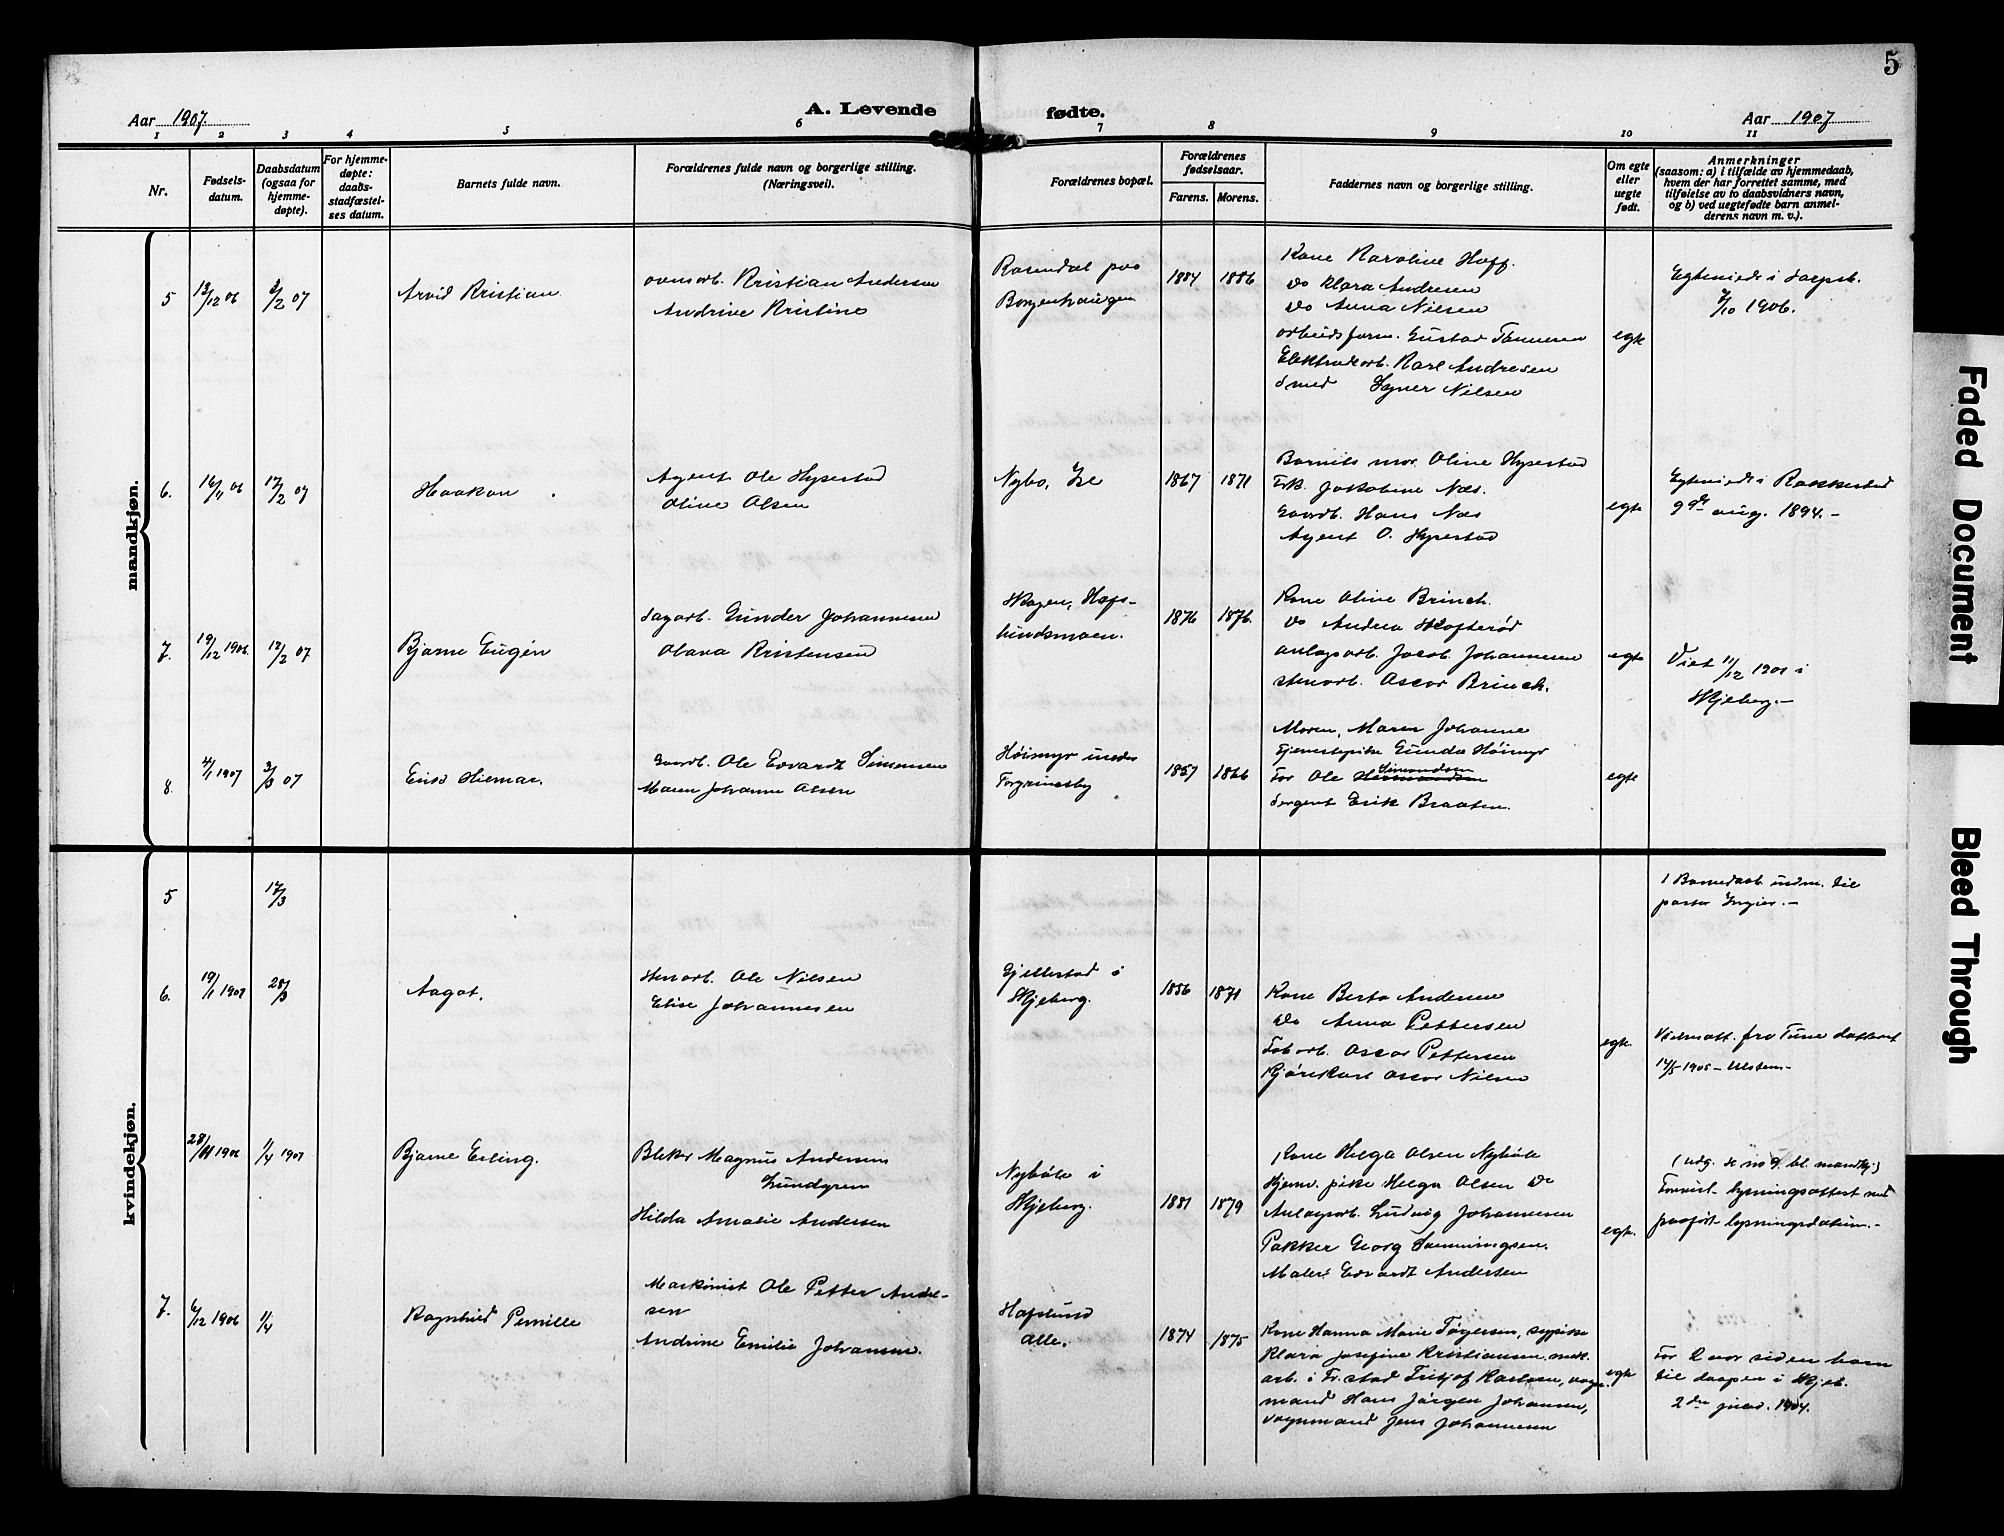 5
A. Levende fødte.
Aar 1907.
Aar 1907
1 2 3 4 5 6 7 8 9 10 11
Nr.
Fødsels-
datum.
Daabsdatum
(ogsaa for
hjemme-
døpte).
For hjemme-
døpte:
daabs-
stadfæstel-
ses datum.
Barnets fulde navn.
Forældrenes fulde navn og borgerlige stilling.
(Næringsvei).
Forældrenes bopæl.
Forældrenes
fødselsaar.
Farens. Morens.
Faddernes navn og borgerlige stilling.
Om egte
eller
uegte
født.
Anmerkninger
(saasom: a) i tilfælde av hjemmedaab,
hvem der har forrettet samme, med
tilføielse av to daabsvidners navn,
og b) ved uegtefødte barn anmel-
derens navn m. v.).
mandkjøn.
5
12/12 06
3/2 07
Arvid Kristian
ovnsarb. Kristian Andersen
Andrine Kristine
Rosendal paa
Borgenhaugen
1884 1886
Kone Karoline Hoff.
do Klara Andresen
do Anna Nilsen
arbeidsform. Gustav Tannesen
Elektrodearb. Karl Andresen
Smed Nilsen
egte
Egteviede i Sarpsb.
1906.
6.
16/11 06
17/2 07
Haakon
Agent Ole Hyrestad
Oline Olsen
Nybo, Ise
1867 1871
Barnets mor Oline Hyrestad
Frk. Jakobine Næs.
Gaardb. Hans Næs
Agent O. Hyrestad
egte
Egteviede i Rakkestad
9de aug. 1894.-
7.
19/12 1906
17/2 07
Bjarne Eugén
Sagarb. Gunder Johannesen
Olava Kristensen
Skogen, Hafs-
lundsmoen.
1876 1876.
Kone Oline Brinch.
do Andrea Skofterød
anlægsarb. Jacob Johannesen
stenarb. Oscar Brinch.
egte
Viet 11/12 1901 i
Skjeberg.-
8.
4/1 1907
3/3 07
Erik Hilmar.
Gaardb. Ole Edvardt Simonsen
Maren Johanne Olsen
Høimyr under
Torgrimsby
1857 1866
Moren, Maren Johanne
Tjenestepike Gunda Høimyr
Far Ole Simonsen
Sergent Erik Braaten.
egte
kvindekjøn.
5
17/3
1 Barnedaab indm. til
pastor Ingier.-
6.
19/1 1907
28/3
Aagot.
Stenarb. Ole Nilsen
Elise Johannesen
Gjellestad i
Skjeberg.
1886 1871
Kone Berta Andersen
do Anna Pettersen
Fab arb. Oscar Pettersen
Kjørekarl Oscar Nilsen
egte.
Vielsesatt. fra Tune datteret
14/5 1905 -
28/11 1906
1/4 1907
Bjarne Erling.
Bleker Magnus Andersen
Lundgren
Hilda Amalie Andersen
Nybøle i
Skjeberg.
1881 1879
Kone Helga Olsen Nybøle
Hjemv. pike Helga Olsen do
Anlægsarb. Ludvig Johannesen
Pakker Georg Henningsen.
Maler Edvardt Andersen
egte.
(udg. se no 9. bl. mandkj.)
Forevist lysningsattest med
paaført lysningsdatum.-
7.
6/12 1906
1/4
Ragnhild Pernille
Maskinist Ole Petter Andre-
sen
Andrine Emilie Johansen.
Hafslund
Alle.
1874 1875
Kone Hanna Marie Tøgersen, sypike
Klara Josefine Kristiansen, mek.
arb. i Fr.stad Fritjof Karlsen, vogn-
mand Hans Jørgen Johansen,
vognmand Jens Johannesen
egte
For 2 aar siden barn
til daapen i Skjeb.
2den juled. 1904.
Faded Document
Bleed Through